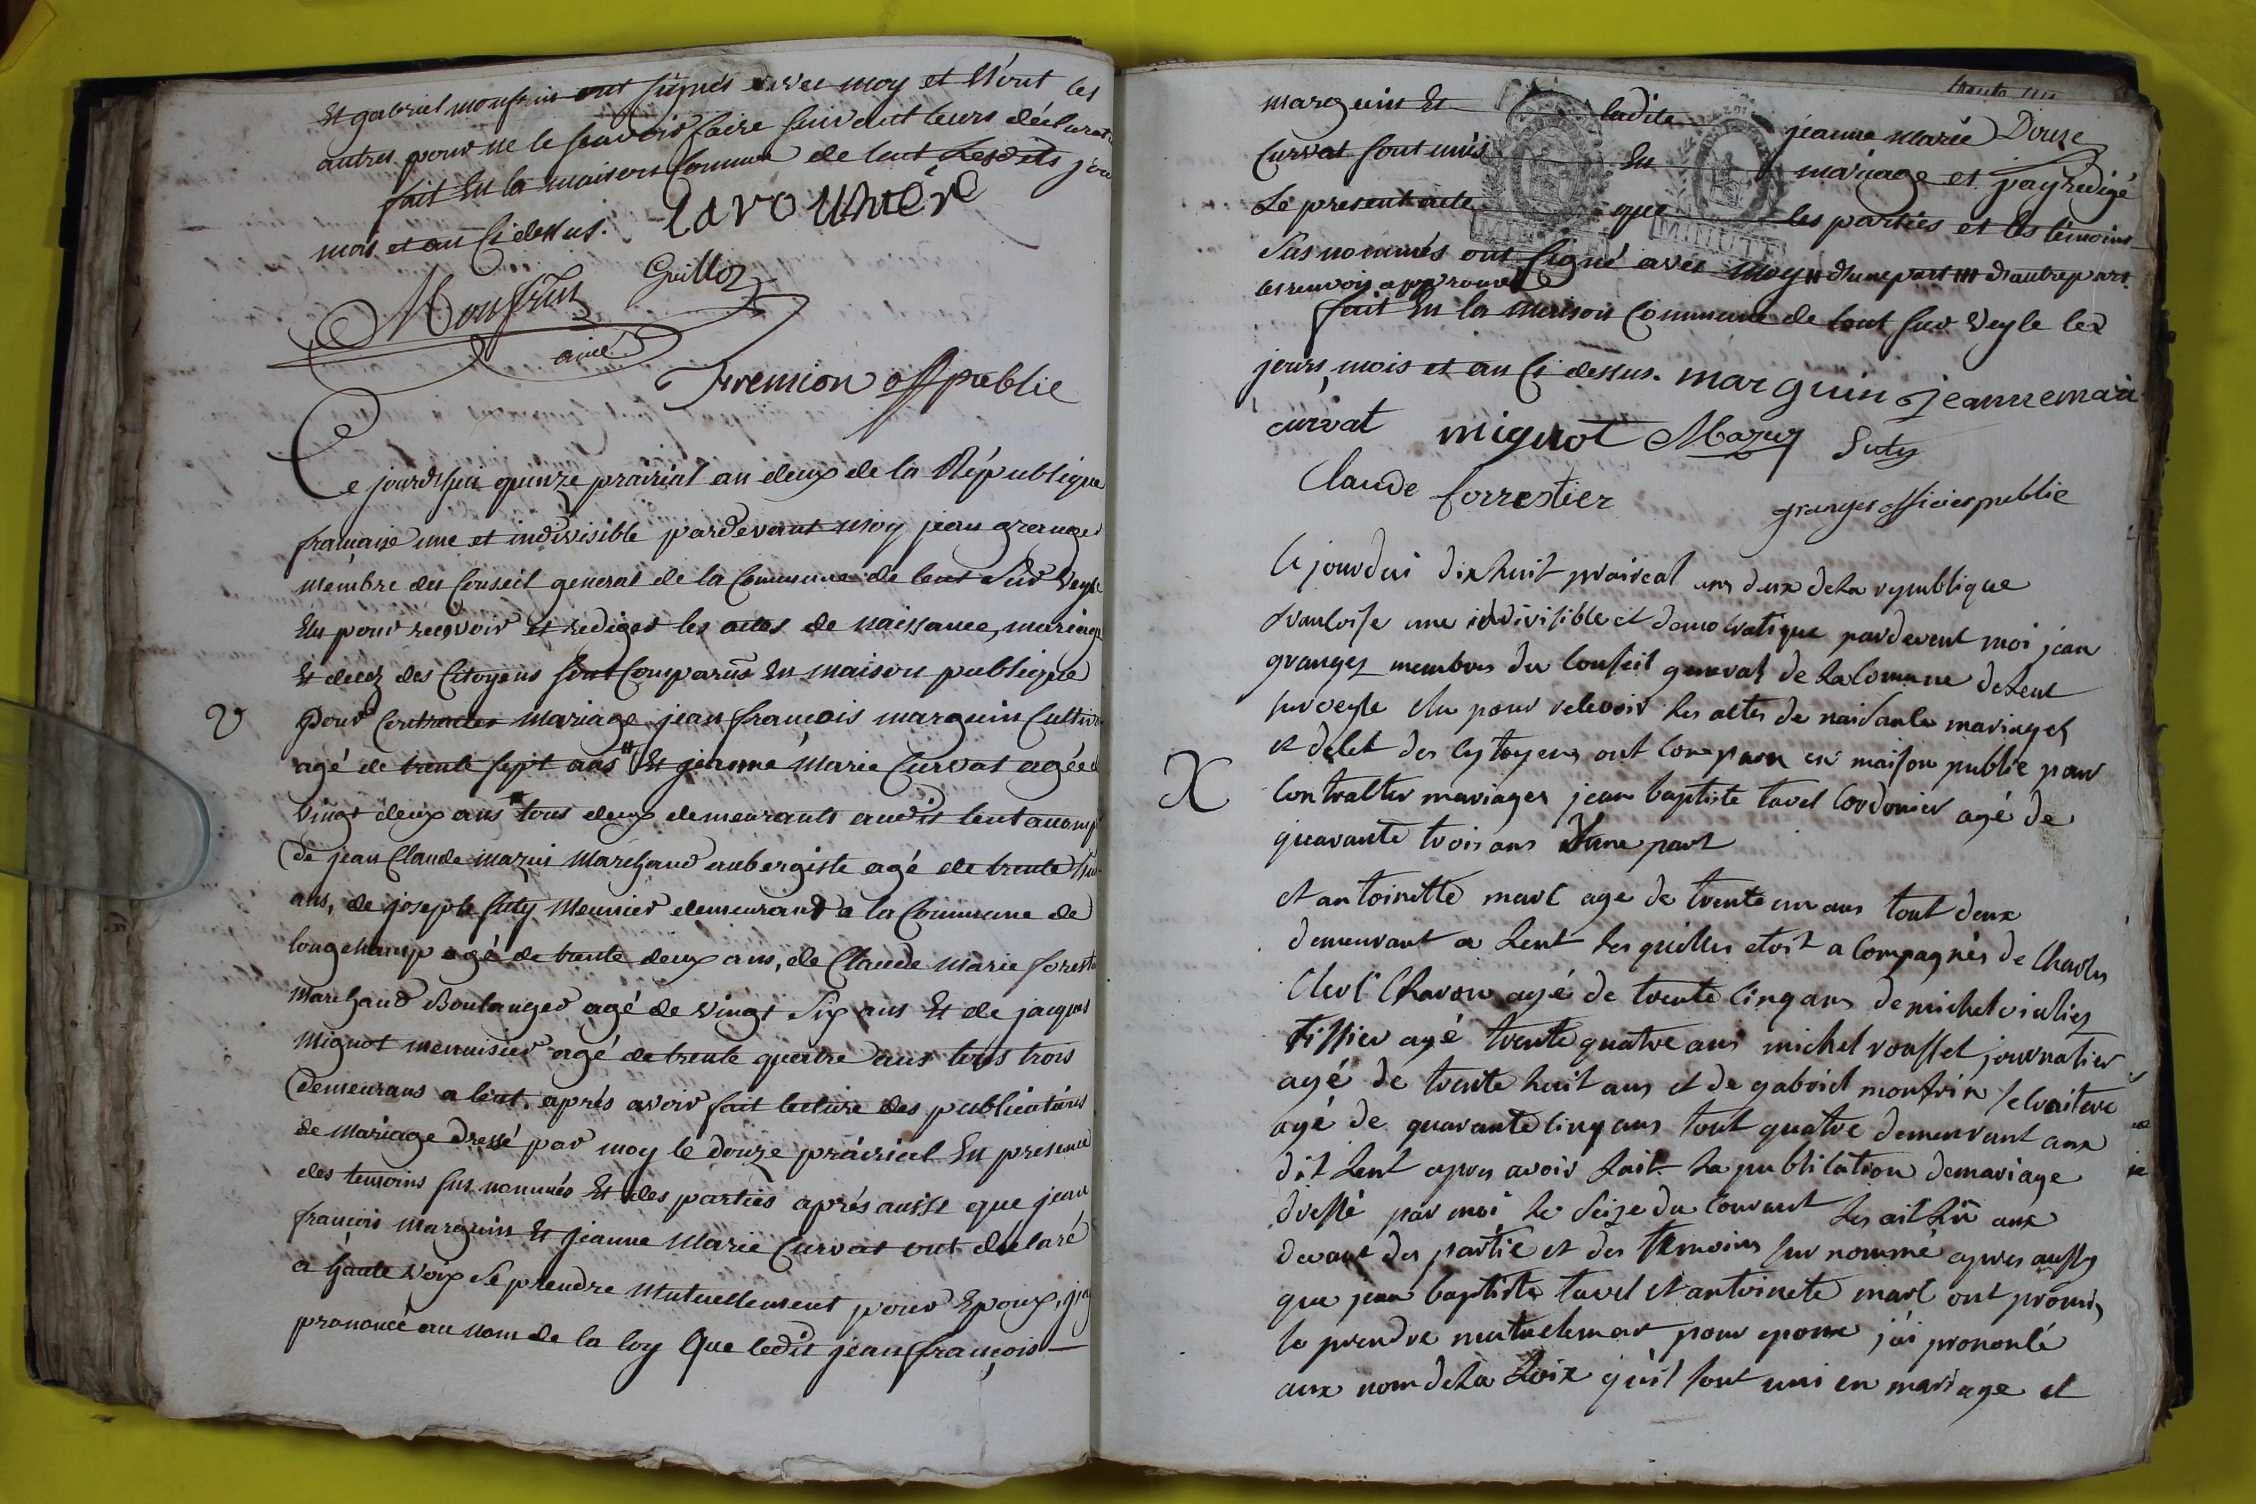 Et gabriel monfrin ont signés avec moy et N'ont les
autres pour ne le scavoir faire suivant leurs déclarat
fait En la maison Commune de lent Lesdits jou
mois et an Ci dessus. Lavouniere
Guilloz
Monfrin
ainé
Fremion off public
Ce jourd'hui quinze prairial an deux de la République
française une et indivisible pardevant moy jean granger
membre du Conseil general de la Commune de lent Sur Veyle
Elu pour recevoir et rediger les actes de naissance, mariage
Et decez des Citoyens sont Comparus En maison publique
V
pour Contracter mariage jean françois marguin Cultiv
agé de trente sept ans # Et jeanne Marie Curvat agée d
vingt deux ans # tous deux demeurants audit lent accomp
de jean Claude mazui Marchand aubergiste agé de trente
ans, de joseph Suty Meunier demeurant a la Commune de
longchamp agé de trente deux ans, de Claude Marie foresti
Marchand Boulanger agé de vingt Six ans Et de jacques
Mignot menuisier agé de trente quatre ans tous trois
demeurans a lent. après avoir fait lecture des publications
de mariage dressé par moy le douze prairial En presence
des temoins sus nommés Et des parties après aussi que jean
françois Marguin Et jeanne Marie Curvat ont declaré
a haute voix Se prendre Mutuellement pour Epoux, j'ai
prononcé au nom de la loy Que ledit jean françois
trente
marguin Et ladite jeanne marie Douze
Curvat sont unis En mariage et j'ay redigé
Le present acte que les parties et les temoins
MINUTE
Sus nommés ont Signé avec moy # d'une part ### d'autre part.
les renvois approuvés
fait En la Maison Commune de lent sur Veyle les
jours, mois et an Ci dessus. marguin jeanne mari
curvat mignot Mazuy Suty
Claude forrestier
granger officier public
Ce jourdui dix huit prairéal an deux de La republique
francoise une indivisible et democratique pardevent moi jean
granger membres du Conseil general de La Comune de Lent
sur veyle elu pour recevoir Les actes de naissance mariages
et decet des Cytoyens ont Comparu en maison public pour
X
Contracter mariages jean baptiste tavel Cordonier agé de
quarante trois ans d'une part
et antoinette marc age de trente un ans tout deux
demeurant a Lent Les quelles etoit a Compagnés de Charles
Clerc Charon agé de trente Cinq ans de michel
tissier agé trente quatre ans michel roussel journalier
agé de trente huit ans et de gabriel monfrin secraitere
agé de quarante Cinq ans tout quatre demeurant aux
dit Lent apres avoir Fait La publication de mariage
dressé par moi Le Seize du Courant Les ait Lû aux
devant des partie et des temoins sur nommé apres aussy
que jean baptiste tavel et antoinete marc ont promis
se prendre mutuelemet pour epoux j'ai prononcé
aux nom de La Loix qu'il sont uni en mariage et